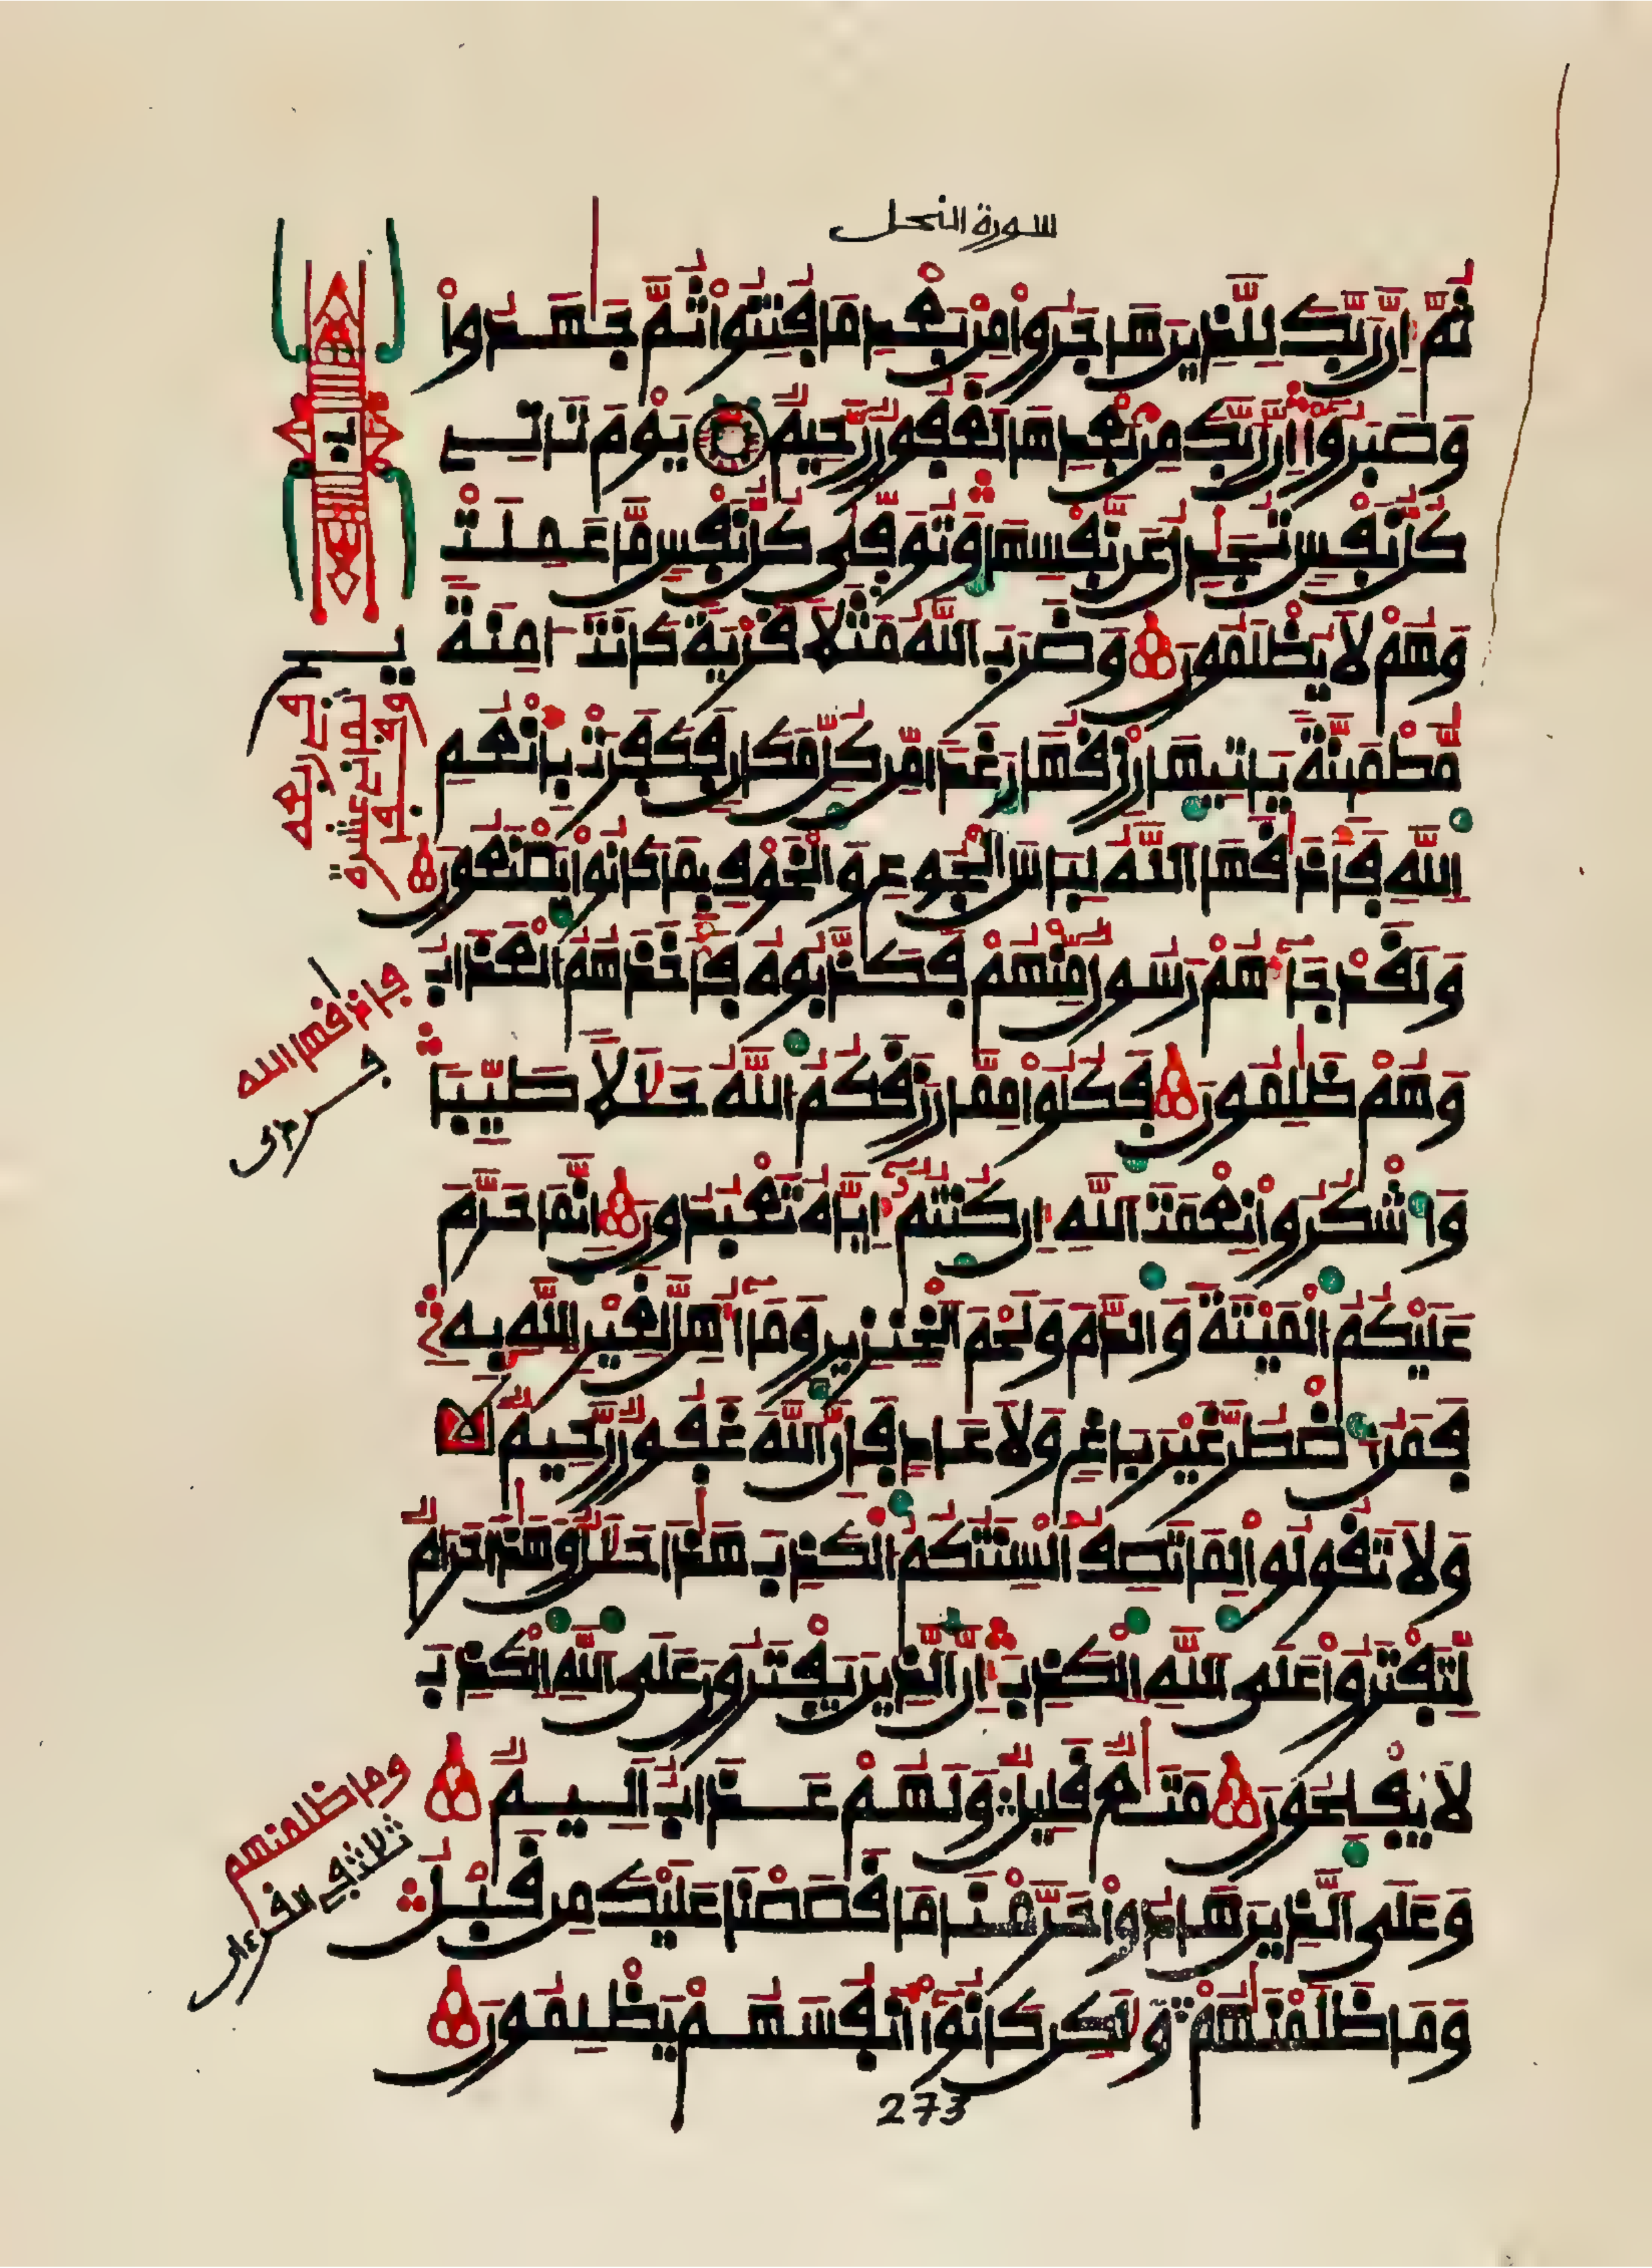 سورة النحل
ثُمَّ إِنَّ رَبَّكَ لِلَّذِينَ هَاجَرُوا۟ مِنۢ بَعْدِ مَا فُتِنُوا۟ ثُمَّ جَٰهَدُوا۟
وَصَبَرُوٓا۟ إِنَّ رَبَّكَ مِنۢ بَعْدِهَا لَغَفُورٌ رَّحِيمٌ يَوْمَ تَاتِے
كُلُّ نَفْسٍ تُجَٰدِلُ عَن نَّفْسِهَا وَتُوَفَّىٰ كُلُّ نَفْسٍ مَّا عَمِلَتْ
وَهُمْ لَا يُظْلَمُونَ وَضَرَبَ اللَّهُ مَثَلًا قَرْيَةً كَانَتَ اٰمِنَةً
مُّطْمَئِنَّةً يَاتِيهَا رِزْقُهَا رَغَدًا مِّن كُلِّ مَكَانٍ فَكَفَرَتْ بِأَنْعُمِ
اللَّهِ فَأَذَٰقَهَا اللَّهُ لِبَاسَ الْجُوعِ وَالْخَوْفِ بِمَا كَانُوا۟ يَصْنَعُونَ
وَلَقَدْ جَآءَهُمْ رَسُولٌ مِّنْهُمْ فَكَذَّبُوهُ فَأَخَذَهُمُ الْعَذَابُ
وَهُمْ ظَٰلِمُونَ فَكُلُوا۟ مِمَّا رَزَقَكُمُ اللَّهُ حَلَٰلًا طَيِّبًا
وَاشْكُرُوا۟ نِعْمَتَ اللَّهِ إِن كُنتُمُۥٓ إِيَّاهُ تَعْبُدُونَ إِنَّمَا حَرَّمَ
عَلَيْكُمُ الْمَيْتَةَ وَالدَّمَ وَلَحْمَ الْخِنزِيرِ وَمَآ أُهِلَّ لِغَيْرِ اللَّهِ بِهِۦ
فَمَنُ اضْطُرَّ غَيْرَ بَاغٍ وَلَا عَادٍ فَإِنَّ اللَّهَ غَفُورٌ رَّحِيمٌ
وَلَا تَقُولُوا۟ لِمَا تَصِفُ أَلْسِنَتُكُمُ الْكَذِبَ هَٰذَا حَلَٰلٌ وَهَٰذَا حَرَامٌ
لِّتَفْتَرُوا۟ عَلَى اللَّهِ الْكَذِبَ إِنَّ الَّذِينَ يَفْتَرُونَ عَلَى اللَّهِ الْكَذِبَ
لَا يُفْلِحُونَ مَتَٰعٌ قَلِيلٌ وَلَهُمْ عَذَابٌ أَلِيمٌ
وَعَلَى الَّذِينَ هَادُوا۟ حَرَّمْنَا مَا قَصَصْنَا عَلَيْكَ مِن قَبْلُ
وَمَا ظَلَمْنَٰهُمْ وَلَٰكِن كَانُوٓا۟ أَنفُسَهُمْ يَظْلِمُونَ
فاذاقها الله
وما ظلمنهم
ثلاث في القرءان
273